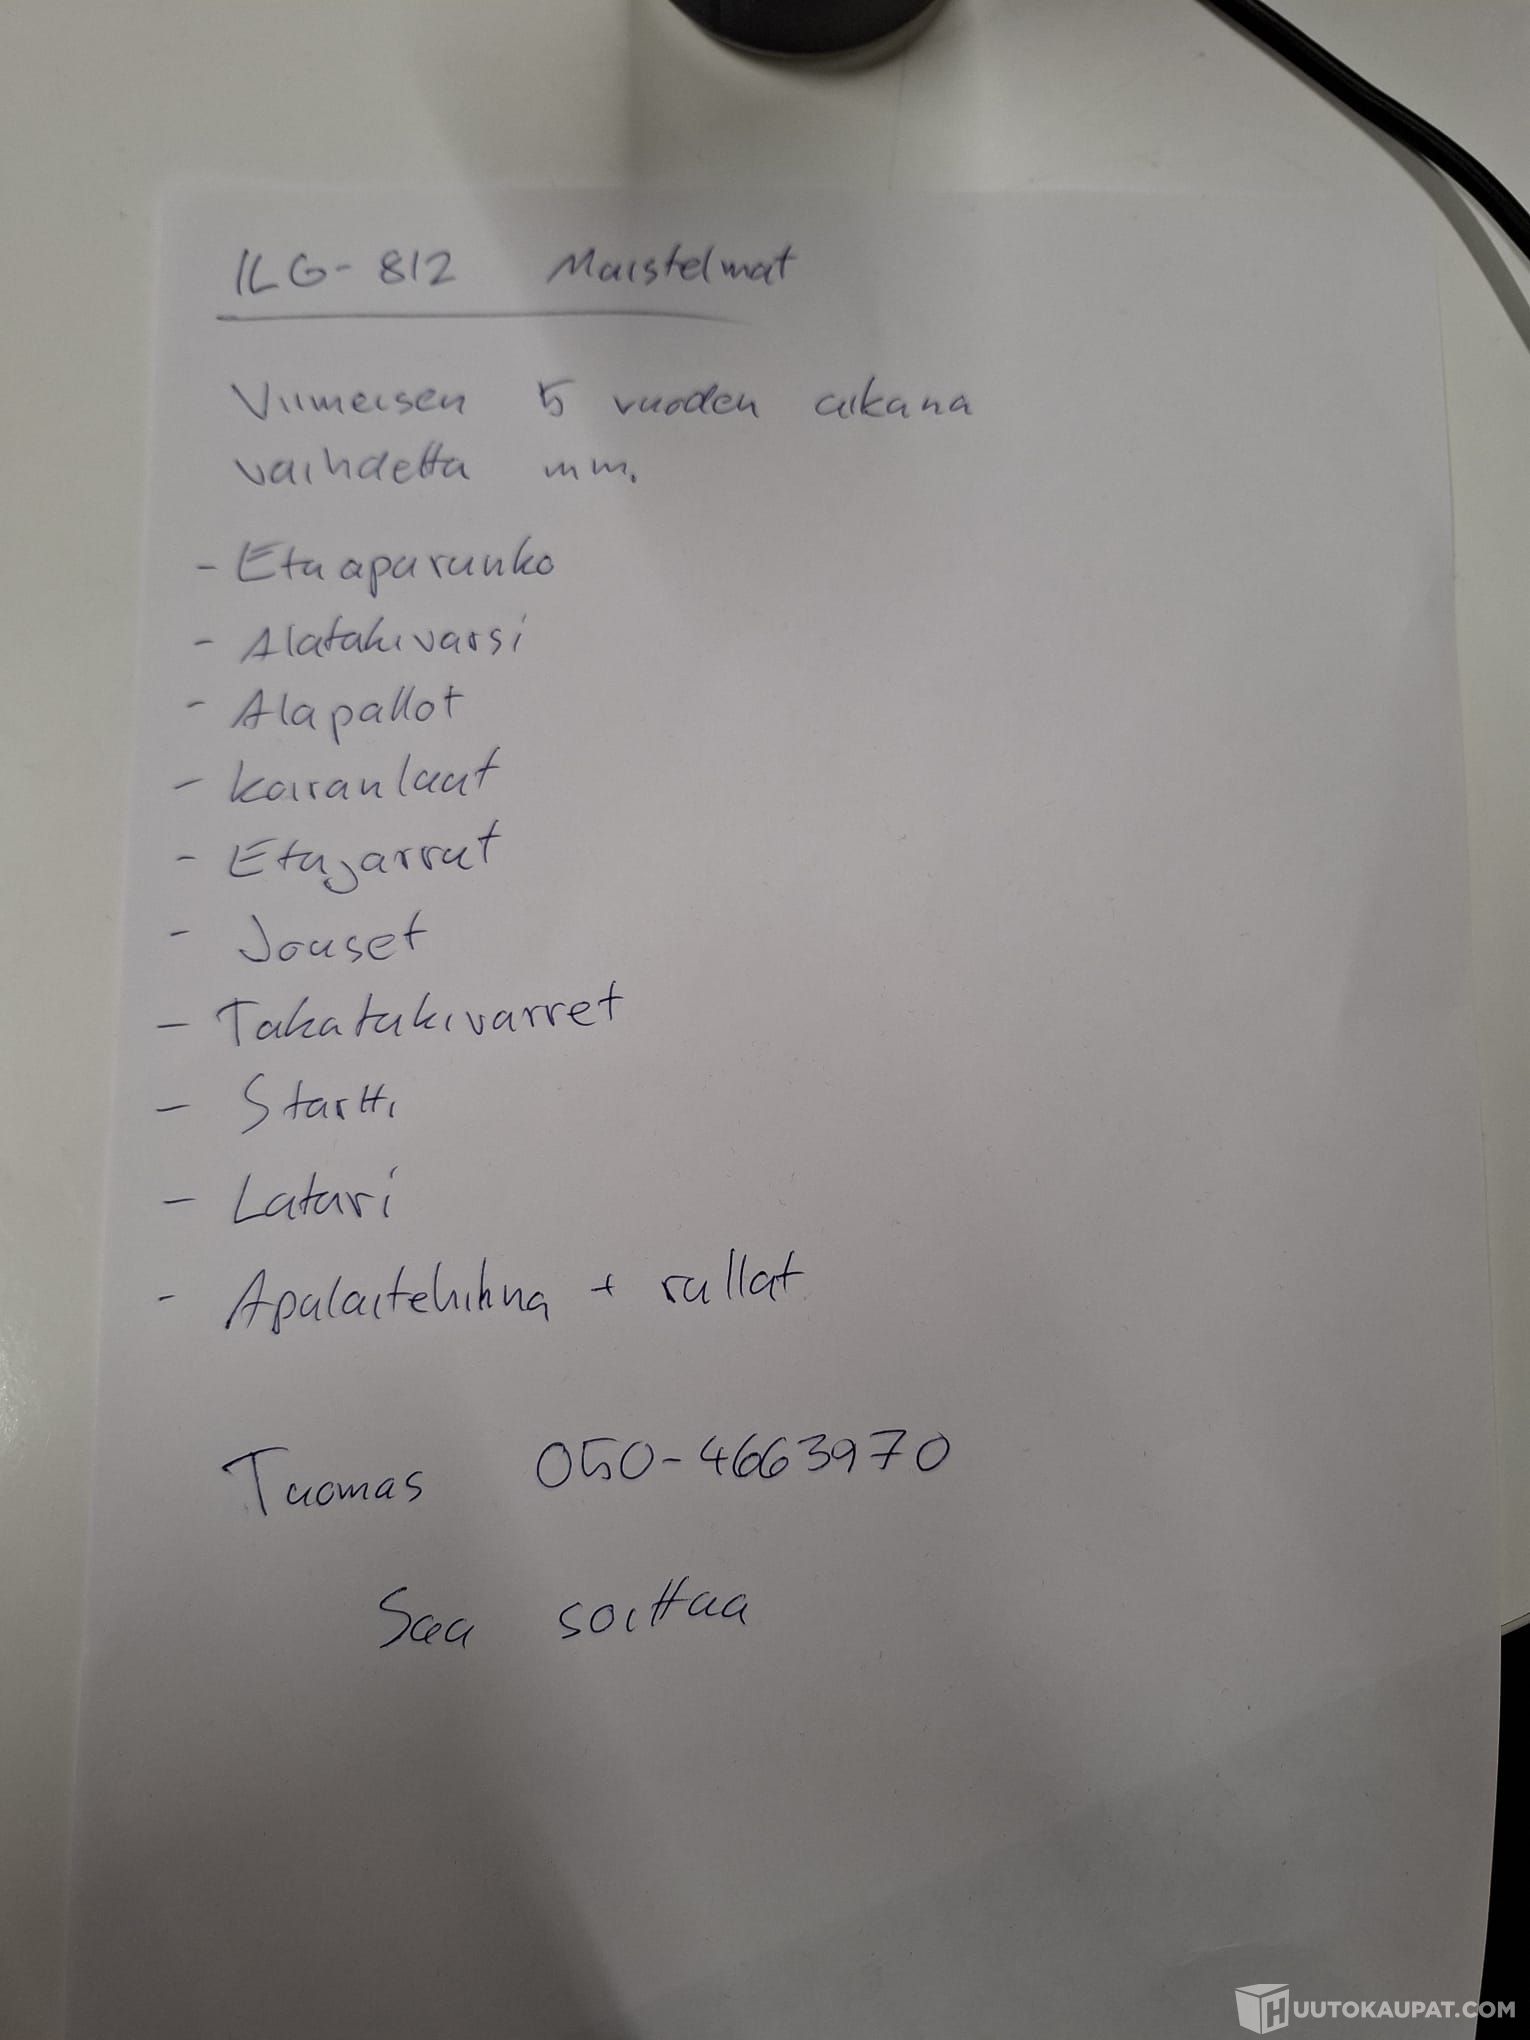 ILG-812 Maistelmat
Viimeisen 5 vuoden aikana
vaihdettu mm.
- Etuapurunko
- Alatukivarsi
- Alapallot
- Koiranluut
- Etujarrut
- Jouset
- Takatukivarret
- Startti
- Laturi
- Apulaitehihna + rullat
Tuomas 050-4663970
Saa soittaa
HUUTOKAUPAT.COM